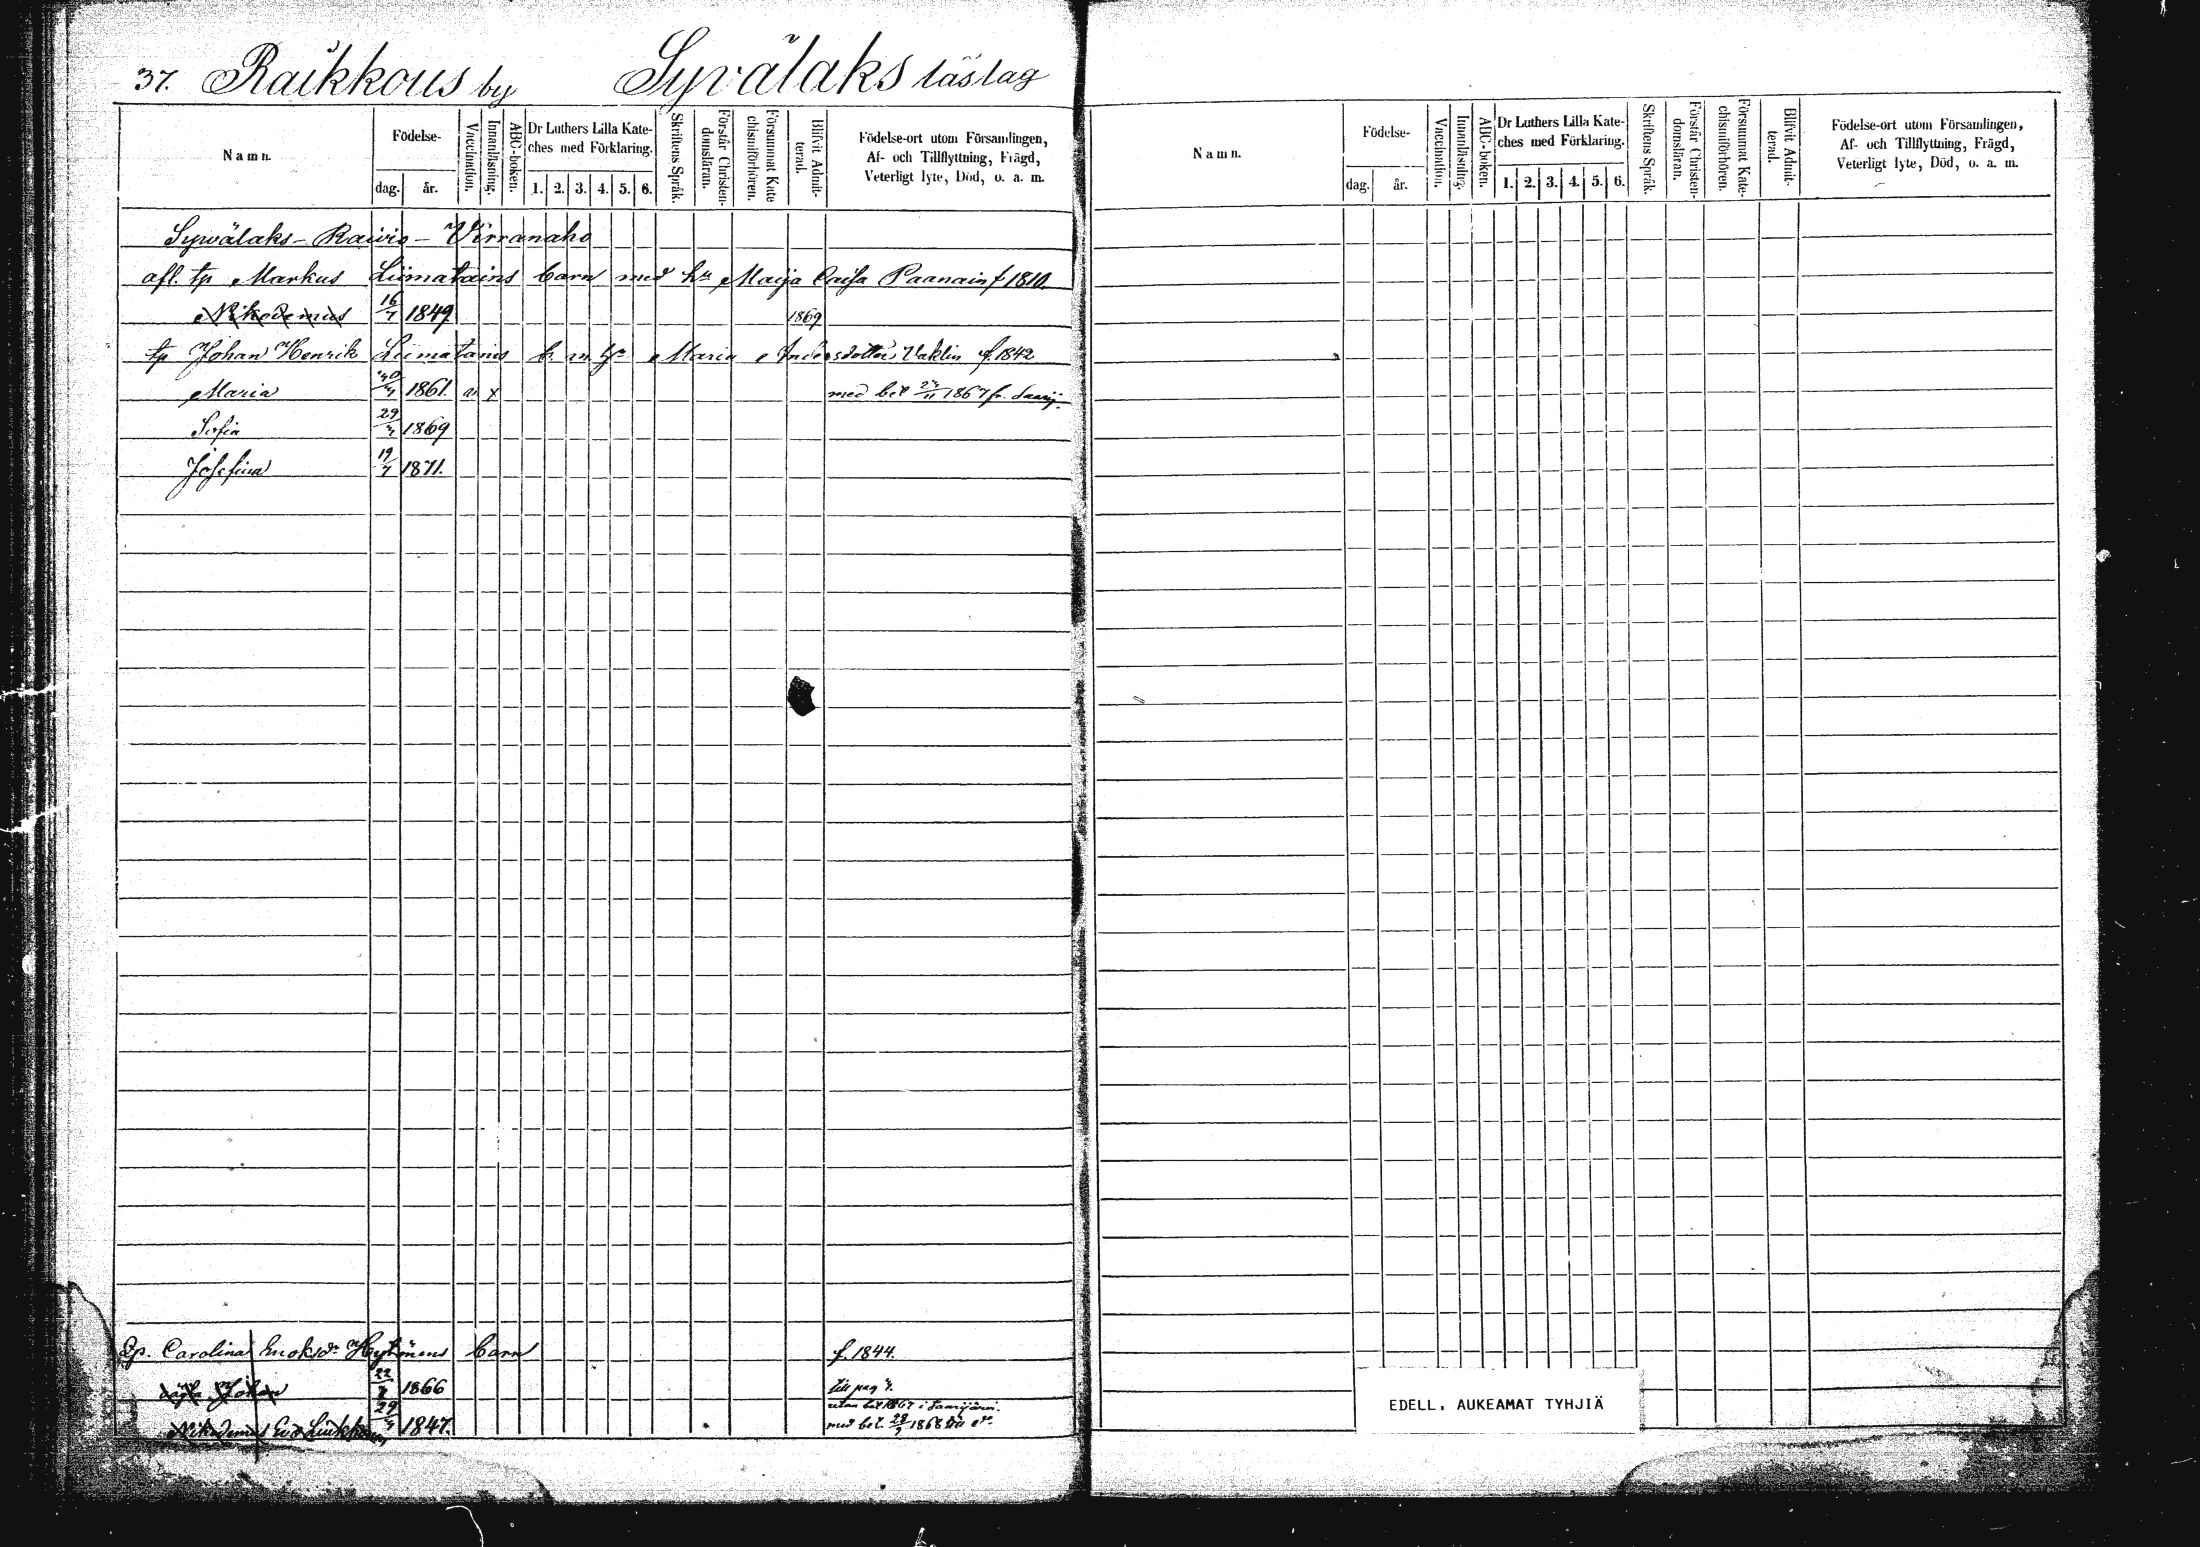 37. Raikkous by Syvälaks läslag
Namn.
Födelse-
dag. år.
Vaccination.
Innanläsning.
ABC-boken.
Dr Luthers Lilla Kate-
ches med Förklaring.
1. 2. 3. 4. 5. 6.
Skriftens Språk.
Förstår Christen-
domsläran.
Försummat Kate
chismiförhören.
Blifvit Admit-
terad.
Födelse-ort utom Församlingen,
Af- och Tillflyttning, Frägd,
Veterligt lyte, Död, o. a. m.
Sywälaks - Raivio - Virranaho
afl. tp Markus Liimatains barn med hu Maija Caisa Paanain f 1810.
Nikodemus 16/7 1849. 1869
tp Johan Henrik Liimatains b. m. hu Maria Andersdotter Vaklin f. 1842
Maria 1861. v. x med bet 1867 fr. Saarij.
Sofia 29 1869
Josefina 19/7 1871.
Carolina Enoksdr Hytönens barn f. 1844.
Johan 22 1866 till pag
utan bet 1867 i Saarijärvi.
Nikodemus 29 1847. med bet. 1868
Namn.
Födelse-
dag. år.
Vaccination.
Innanläsning.
ABC-boken.
Dr Luthers Lilla Kate-
ches med Förklaring.
1. 2. 3. 4. 5. 6.
Skriftens Språk.
Förstår Christen-
domsläran.
Försummat Kate-
chismiförhören.
Blifvit Admit-
terad.
Födelse-ort utom Församlingen,
Af- och Tillflyttning, Frägd,
Veterligt lyte, Död, o. a. m.
EDELL. AUKEAMAT TYHJIÄ